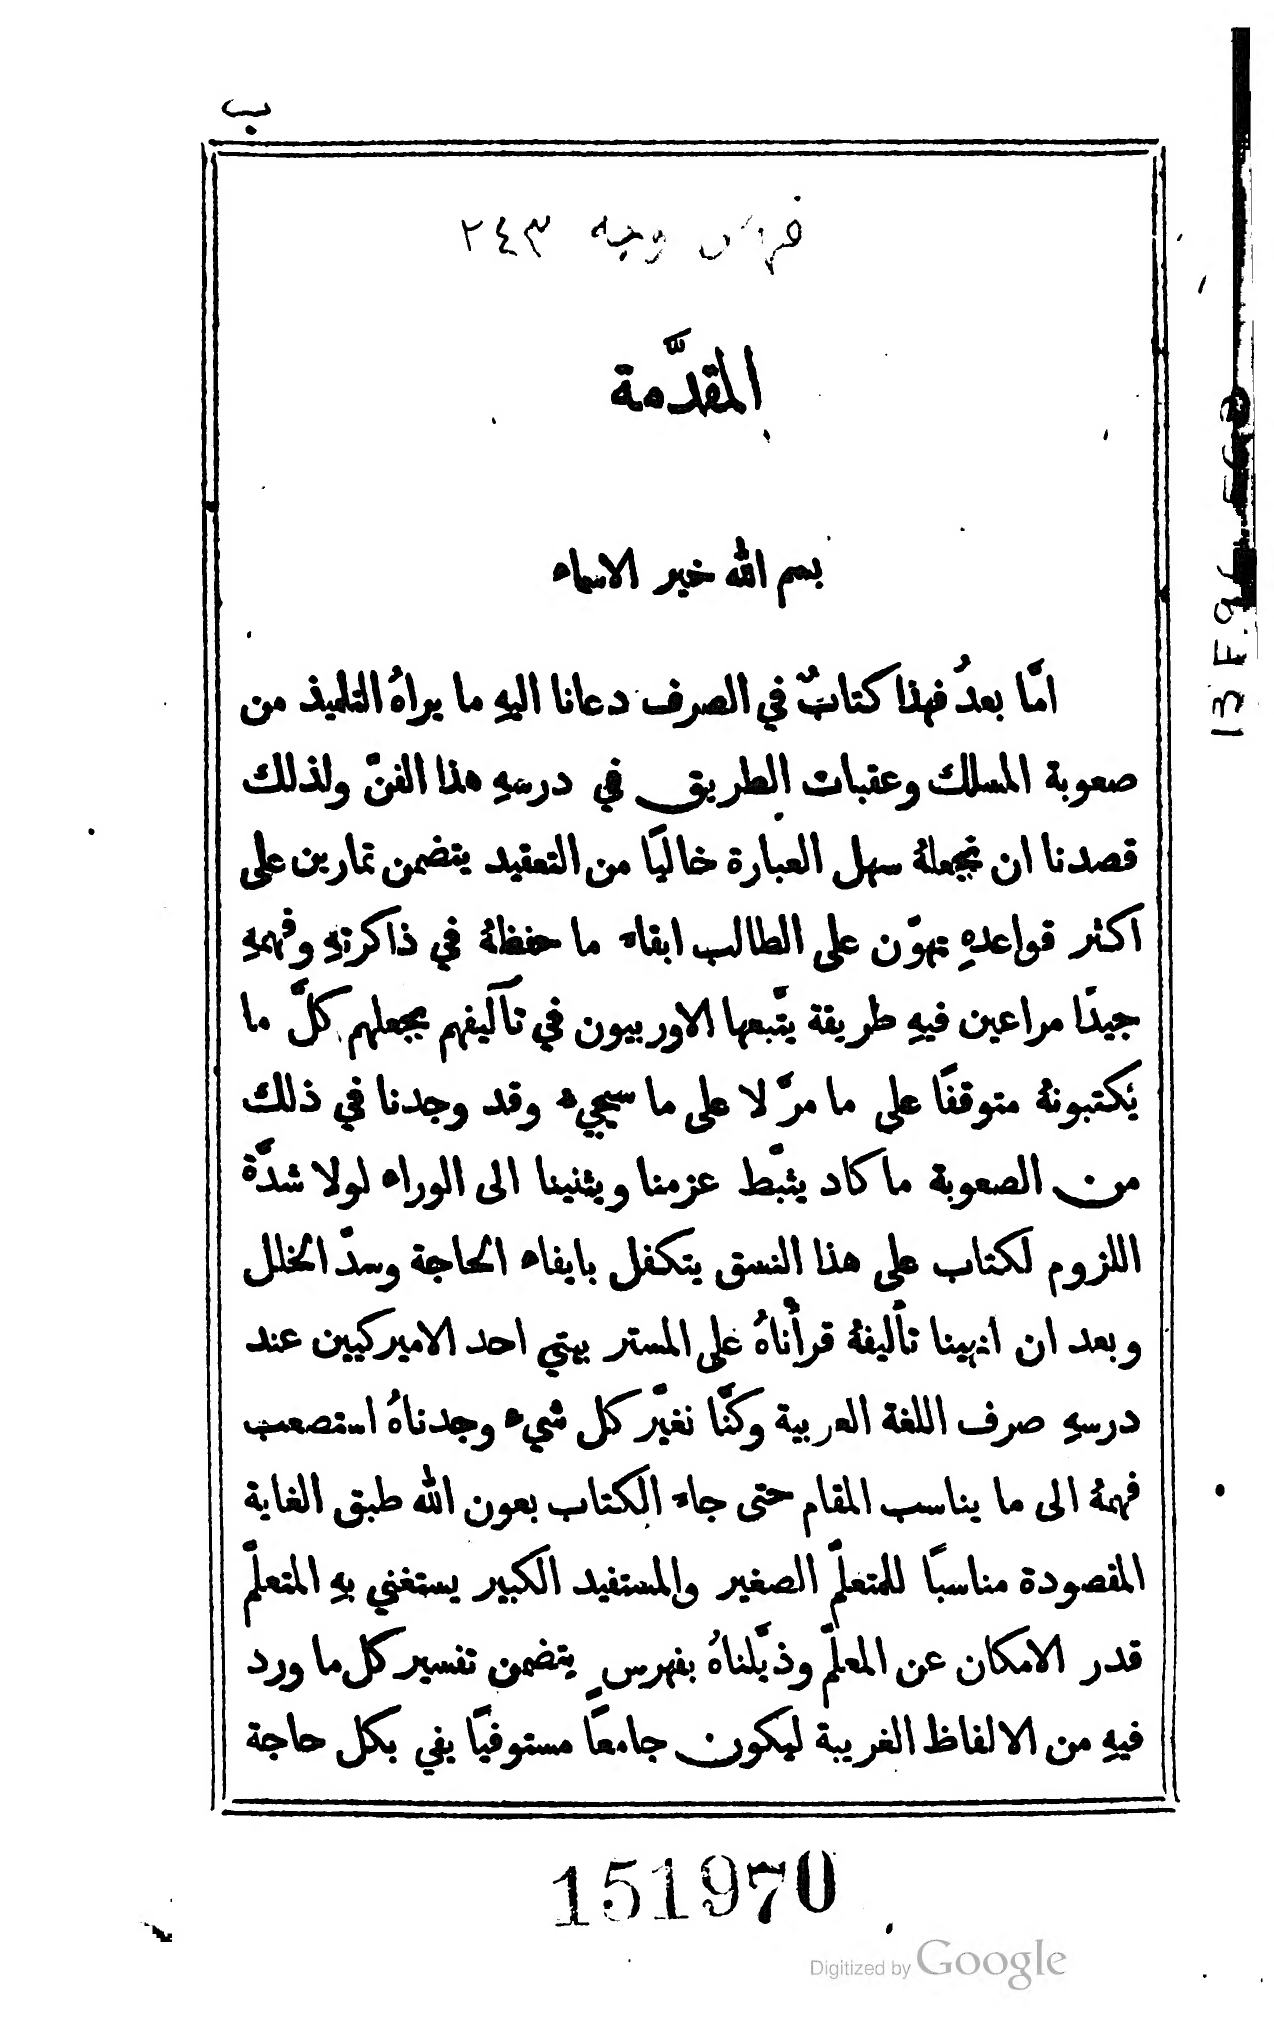 ب
فهرس وجه ٢٤٣
المقدَّمة
بسم الله خير الاسماء
امَّا بعدُ فهذا كتابٌ في الصرف دعانا اليهِ ما يراهُ التلميذ من
صعوبة المسلك وعقبات الطريق في درسهِ هذا الفنّ ولذلك
قصدنا ان نجعلهُ سهل العبارة خاليًا من التعقيد يتضمن تمارين على
اكثر قواعدهِ تهوّن على الطالب ابقاء ما حفظهُ في ذاكرتهِ وفهمهِ
جيدًا مراعين فيهِ طريقة يتَّبعها الاوربيون في تآليفهم بجعلهم كلَّ ما
يكتبونهُ متوقفًا على ما مرَّ لا على ما سيجيء وقد وجدنا في ذلك
من الصعوبة ما كاد يثبّط عزمنا ويثنينا الى الوراء لولا شدَّة
اللزوم لكتاب على هذا النسق يتكفل بايفاء الحاجة وسدّ الخلل
وبعد ان انهينا تأليفهُ قرأناهُ على المستر بيتي احد الاميركيين عند
درسهِ صرف اللغة العربية وكنَّا نغيّر كل شيء وجدناهُ استصعب
فهمهُ الى ما يناسب المقام حتى جاء الكتاب بعون الله طبق الغاية
المقصودة مناسبًا للمتعلّم الصغير والمستفيد الكبير يستغني بهِ المتعلّم
قدر الامكان عن المعلّم وذيَّلناهُ بفهرسٍ يتضمن تفسير كل ما ورد
فيهِ من الالفاظ الغريبة ليكون جامعًا مستوفيًا يفي بكل حاجة
151970
Digitized by Google